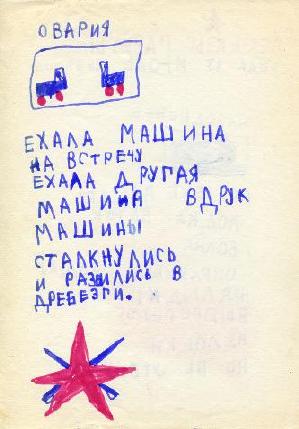 ОВАРИЯ
ЕХАЛА МАШИНА
НА ВСТРЕЧУ
ЕХАЛА ДРУГАЯ
МАШИНА ВДРУК
МАШИНЫ
СТАЛКНУЛИСЬ
И РАЗБИЛИСЬ В
ДРЕБЕЗГИ.